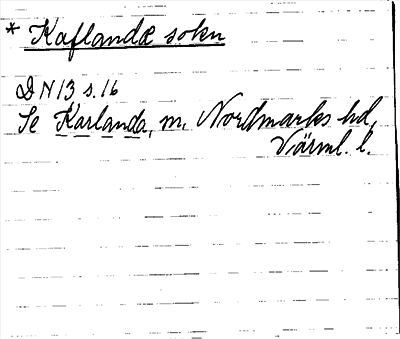 * Kaflandæ sokn
DN 13 s. 16
Se Karlanda, sn, Nordmarks hd,
Värml. l.